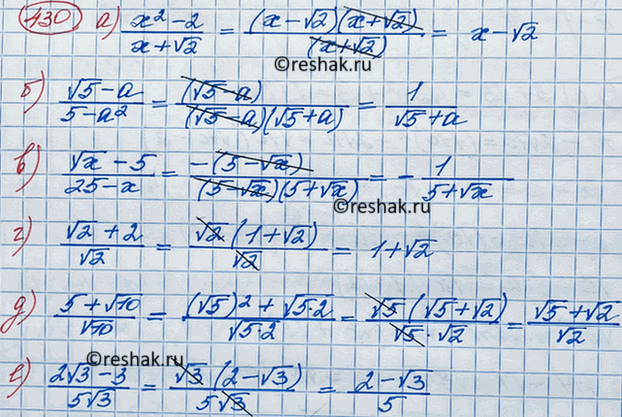 430 а) (x² − 2)/(x + √2) = (x − √2)(x + √2)/(x + √2) = x − √2
©reshak.ru
б) (√5 − a)/(5 − a²) = (√5 − a)/((√5 − a)(√5 + a)) = 1/(√5 + a)
в) (√x − 5)/(25 − x) = −(5 − √x)/((5 − √x)(5 + √x)) = − 1/(5 + √x)
©reshak.ru
г) (√2 + 2)/√2 = √2(1 + √2)/√2 = 1 + √2
д) (5 + √10)/√10 = ((√5)² + √5·2)/√5·2 = √5(√5 + √2)/(√5·√2) = (√5 + √2)/√2
©reshak.ru
е) (2√3 − 3)/5√3 = √3(2 − √3)/5√3 = (2 − √3)/5